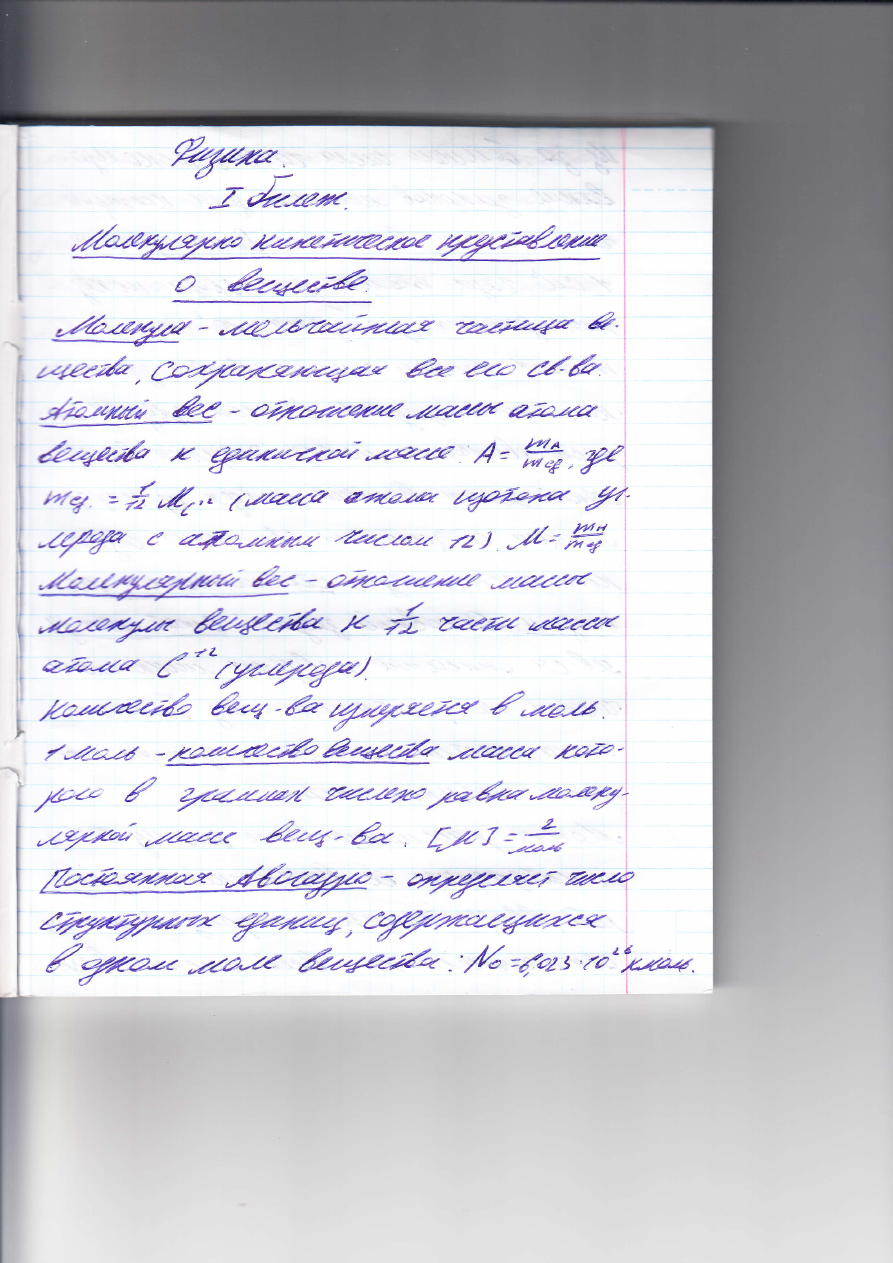 Физика.
I билет.
Молекулярно кинетическое представление
о веществе.
Молекула - мельчайшая частица ве-
щества, сохраняющая все его св-ва.
Атомный вес - отношение массы атома
вещества к единичной массе: A = mA/mед, где
mед. = 1/12 MC12 (масса атома изотопа уг-
лерода с атомным числом 12). M = mм/mед
Молекулярный вес - отношение массы
молекулы вещества к 1/12 части массы
атома C¹² (углерода).
Количество вещ-ва измеряется в моль.
1 моль - количество вещества масса кото-
рого в граммах числено равна молеку-
лярной массе вещ-ва. [M] = г/моль
Постоянная Авогадро - определяет число
структурных единиц, содержащихся
в одном моле вещества: N₀ = 6,023·10²⁶ кмоль.